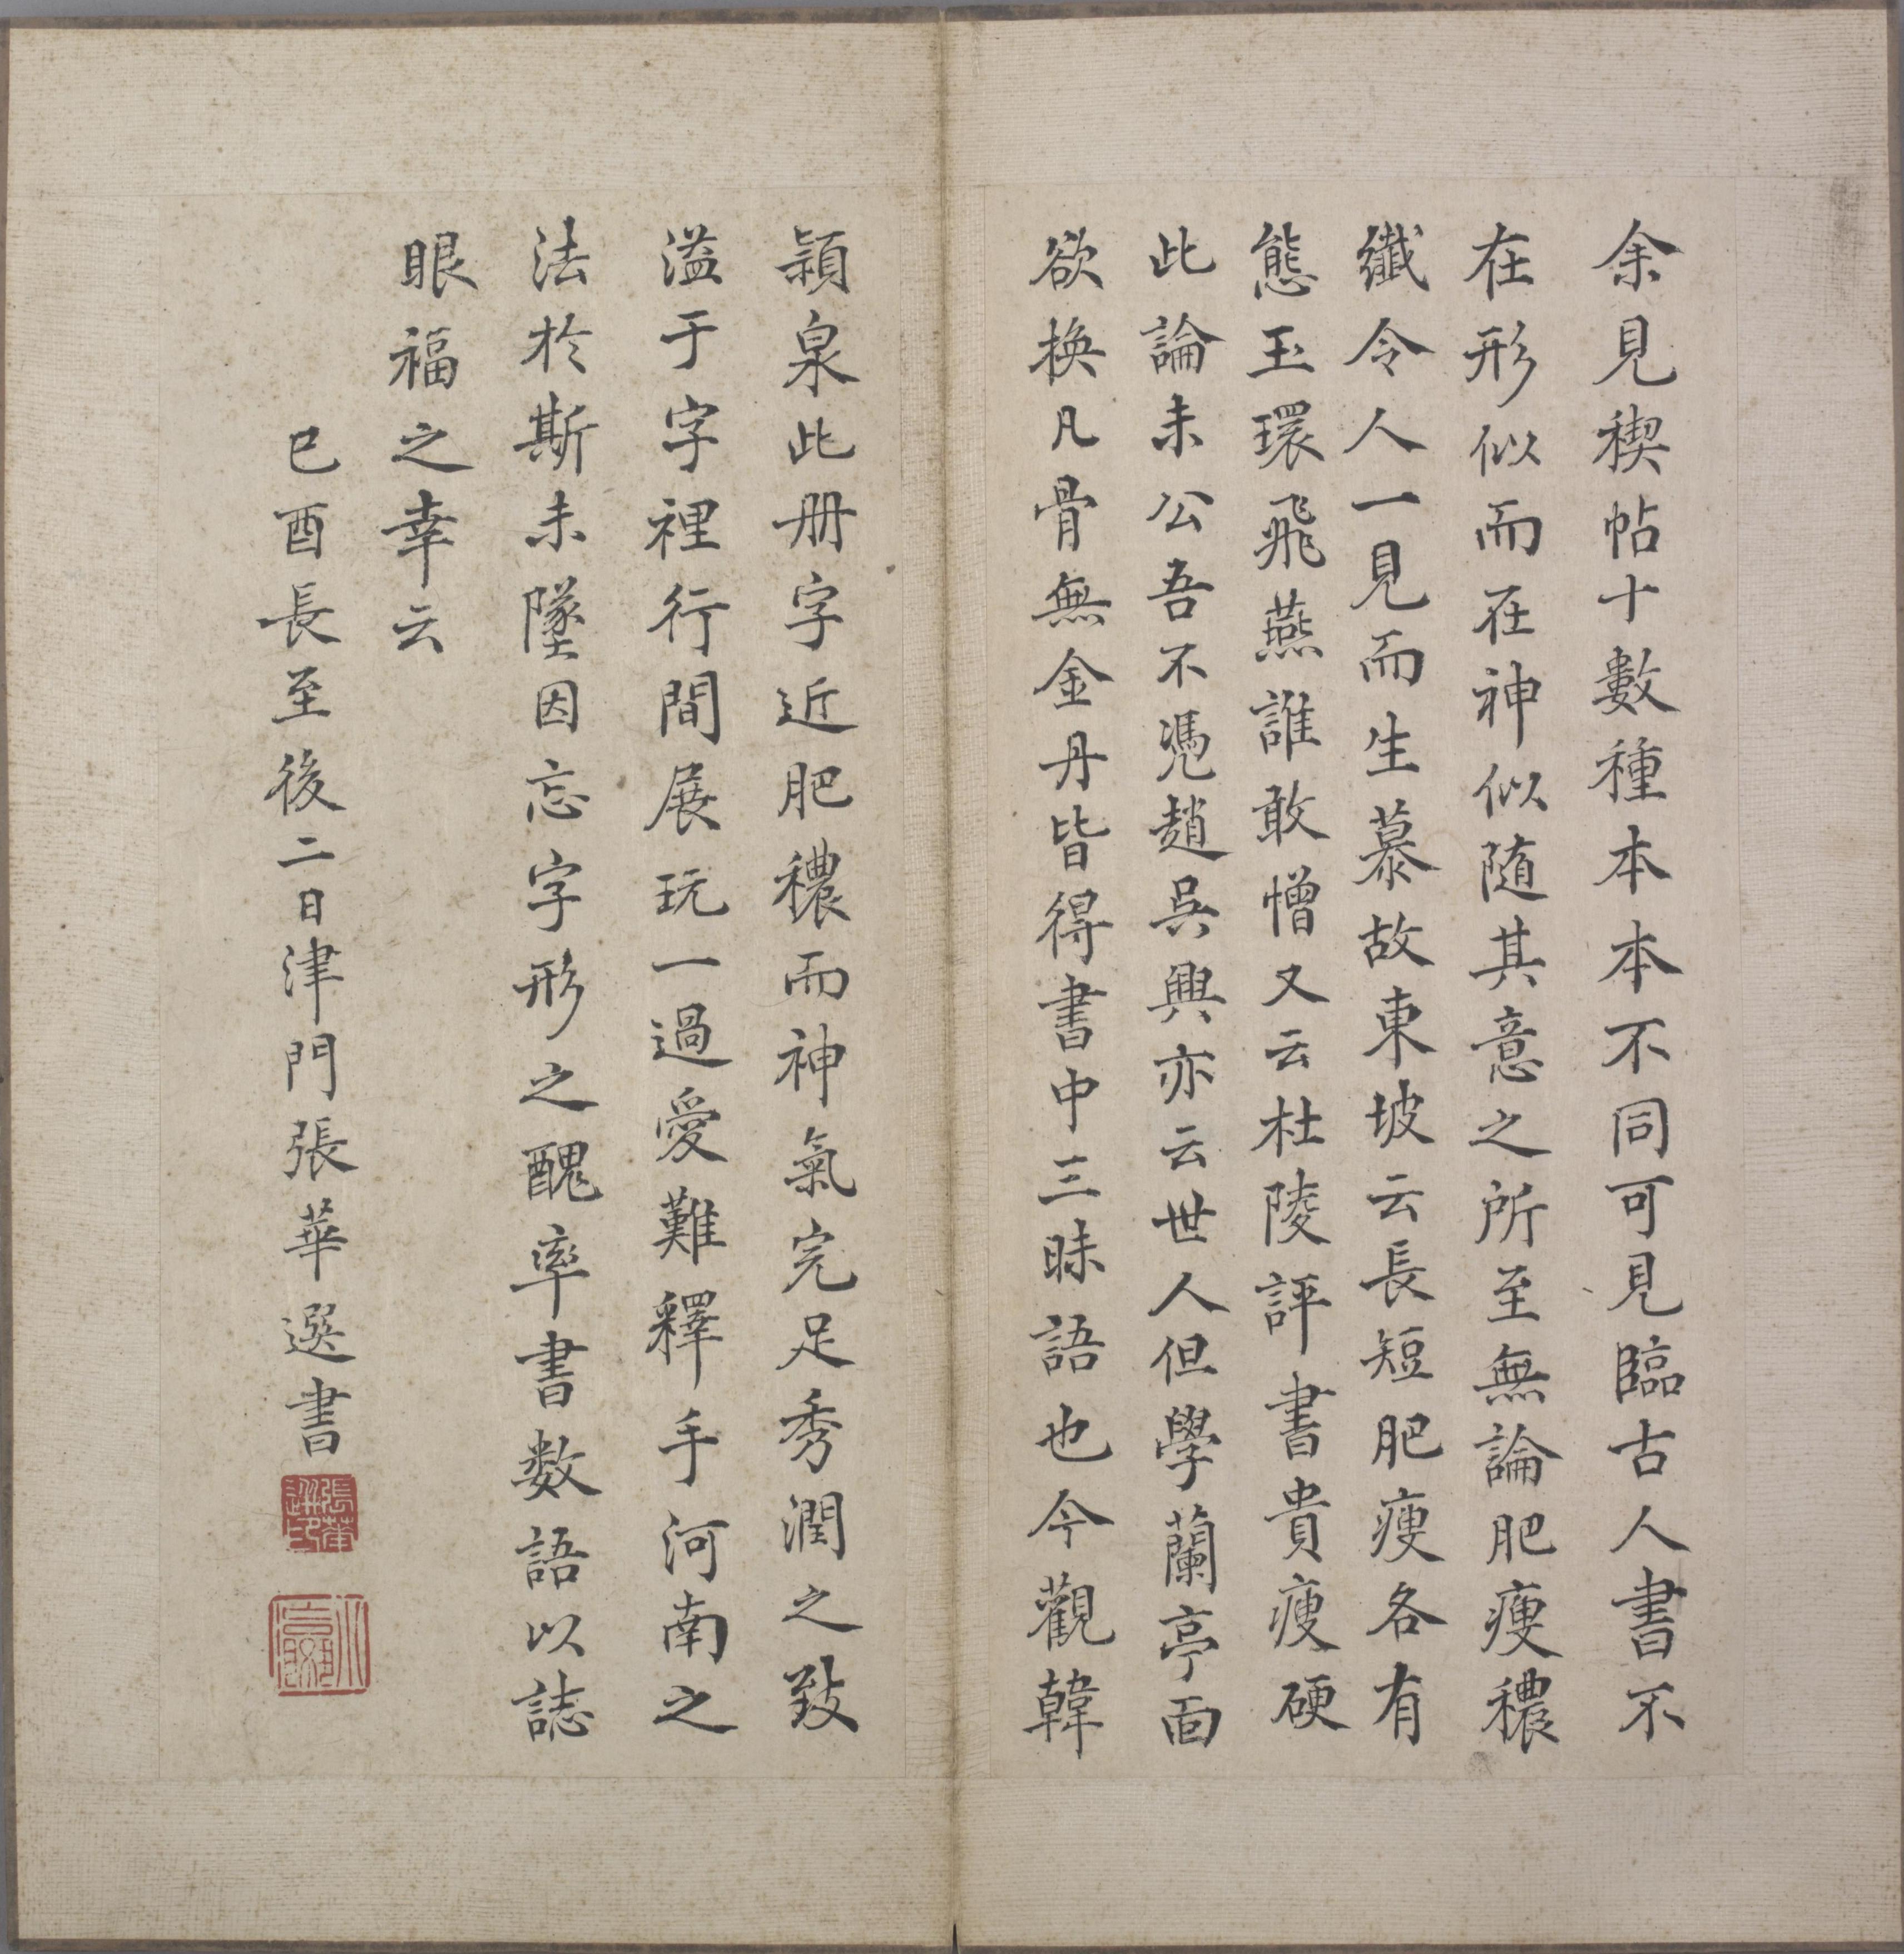 余見稧帖十數種本本不同可見臨古人書不
在形似而在神似隨其意之所至無論肥瘦穠
纖令人一見而生慕故東坡云長短肥瘦各有
態玉環飛燕誰敢憎又云杜陵評書貴瘦硬
此論未公吾不憑趙吳興亦云世人但學蘭亭面
欲換凡骨無金丹皆得書中三昧語也今觀韓
潁泉此册字近肥穠而神氣完足秀潤之致
溢于字裡行間展玩一過愛難釋手河南之
法於斯未墜因忘字形之醜率書数語以誌
眼福之幸云
己酉長至後二日津門張華選書
張華選印